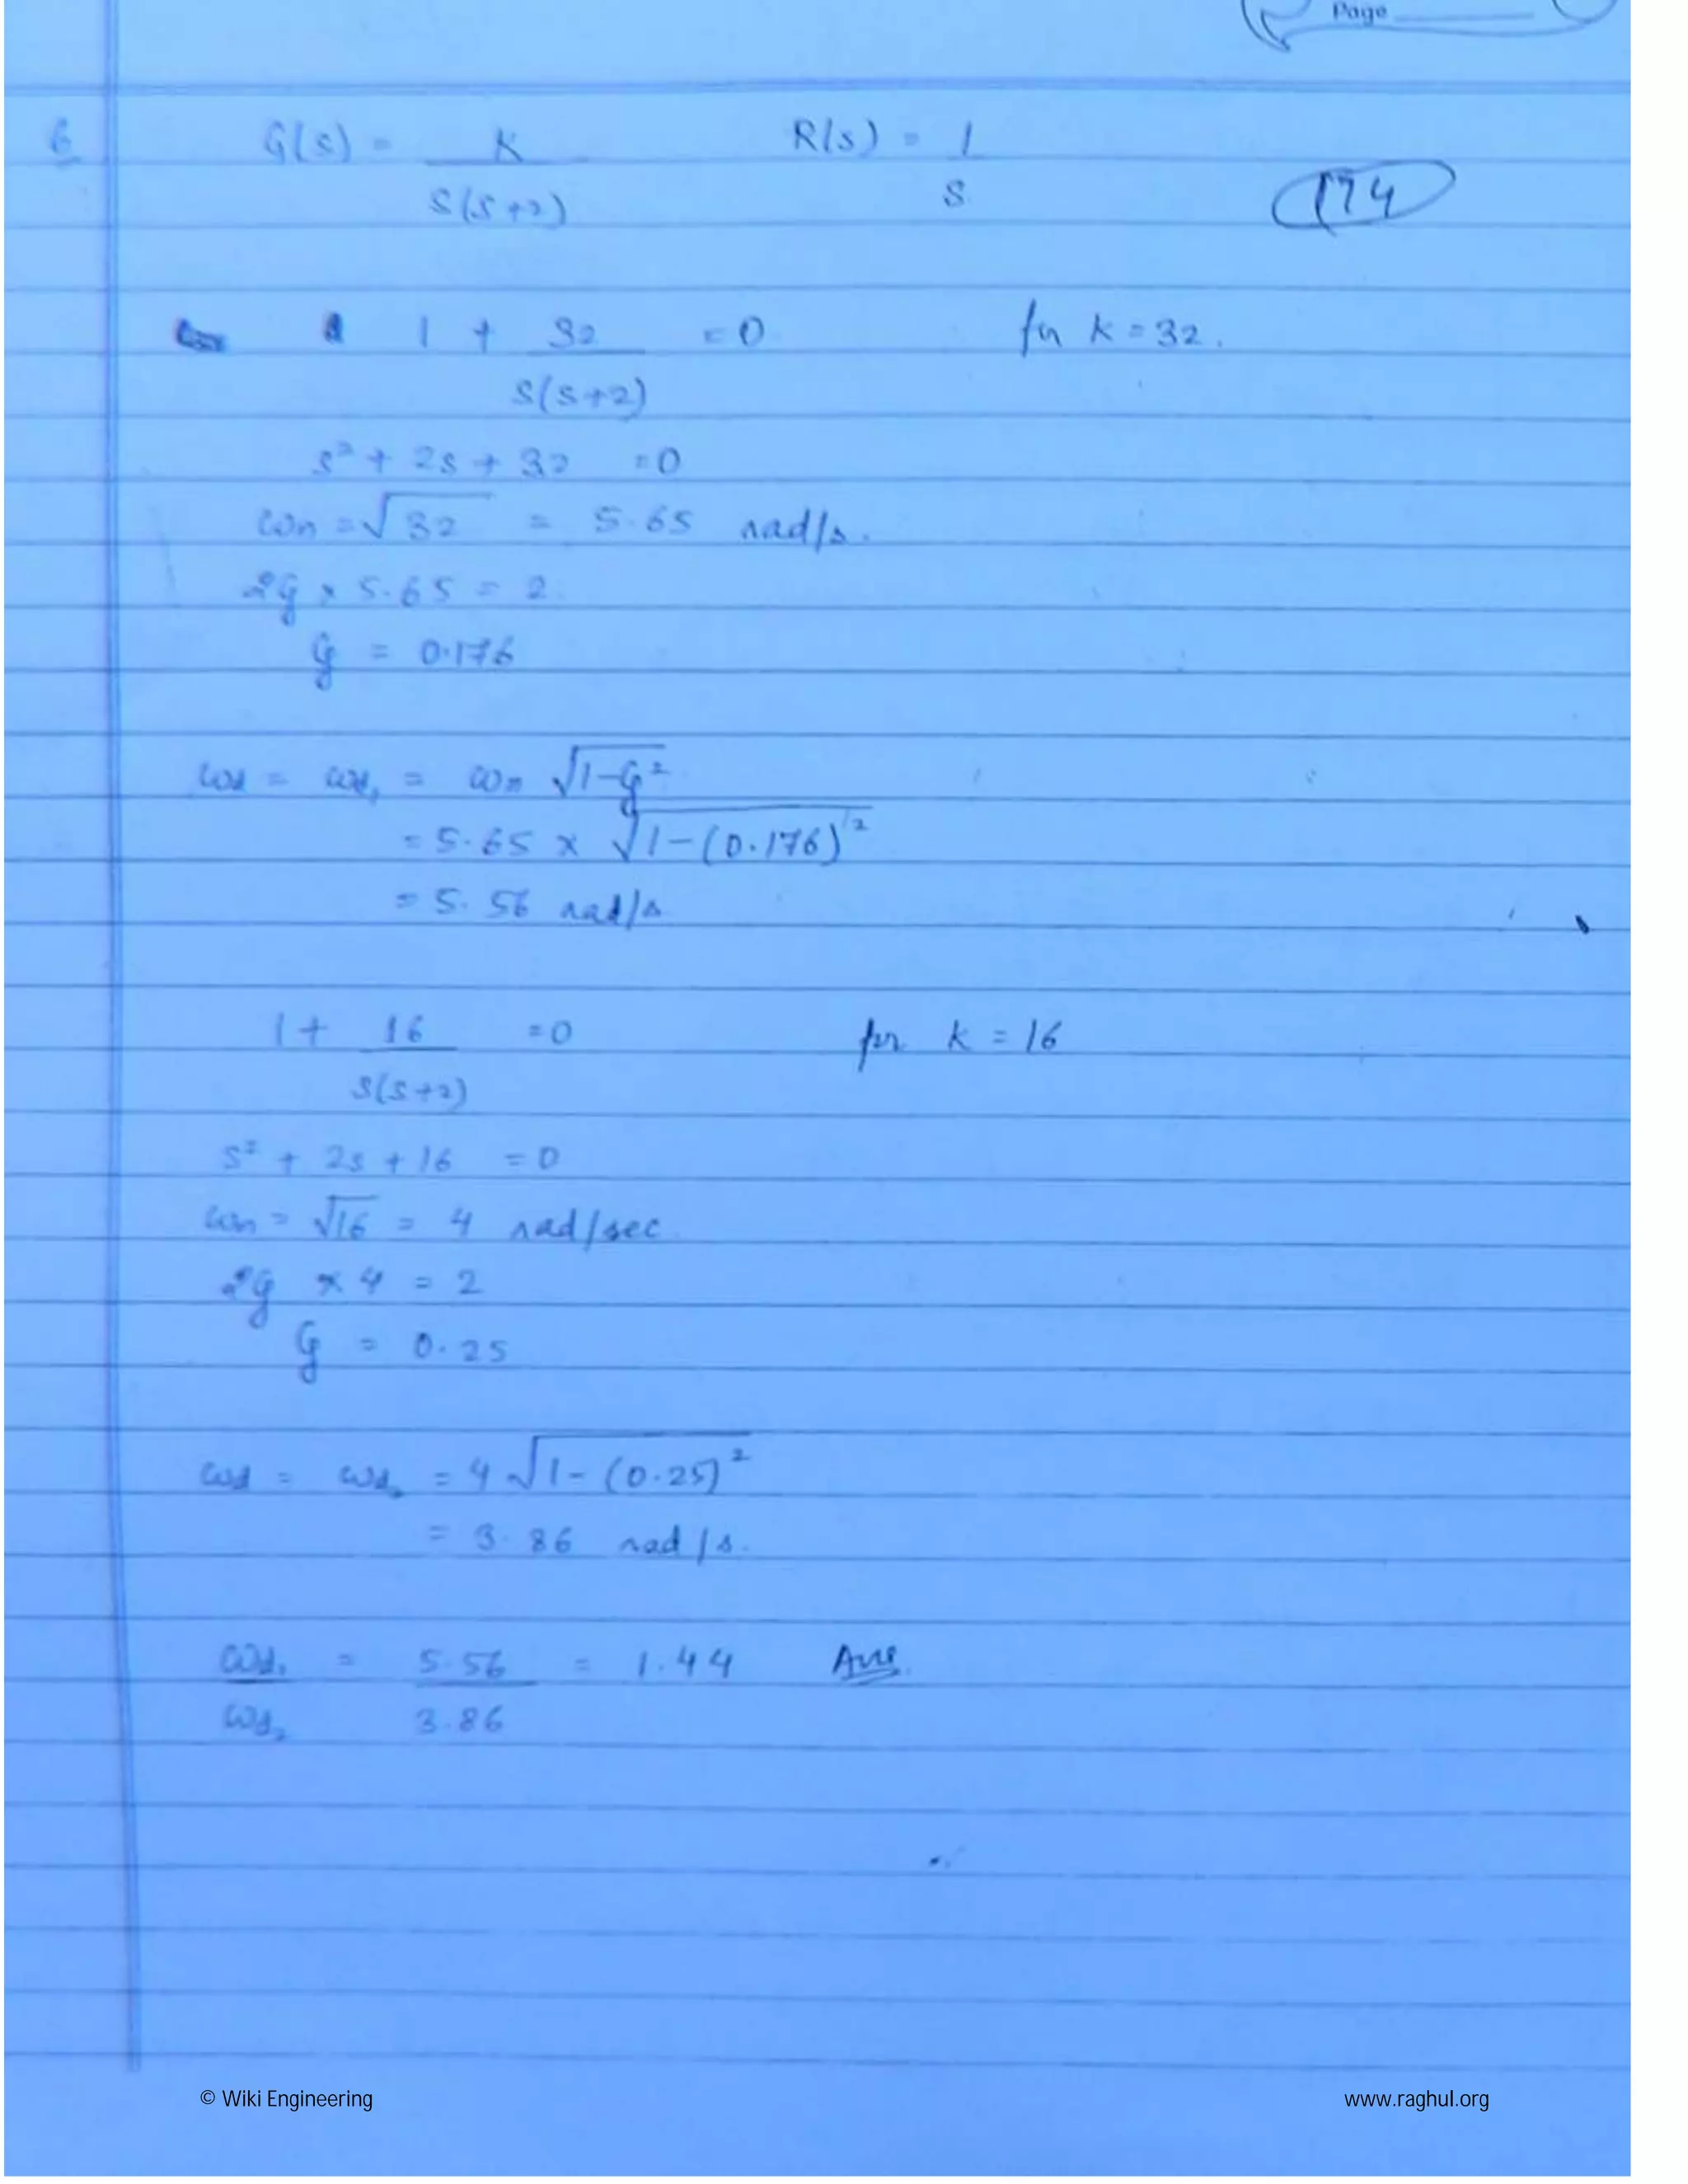 Page
6 G(s) = K / s(s+2) R(s) = 1 / s
174
1 + 32 / s(s+2) = 0 for K = 32.
s² + 2s + 32 = 0
ωn = √32 = 5.65 rad/s.
2ξ × 5.65 = 2
ξ = 0.176
ωd = ωd₁ = ωn √1-ξ²
= 5.65 × √1-(0.176)²
= 5.56 rad/s
1 + 16 / s(s+2) = 0 for K = 16
s² + 2s + 16 = 0
ωn = √16 = 4 rad/sec
2ξ × 4 = 2
ξ = 0.25
ωd = ωd₂ = 4 √1-(0.25)²
= 3.86 rad/s.
ωd₁ / ωd₂ = 5.56 / 3.86 = 1.44 Ans.
© Wiki Engineering www.raghul.org